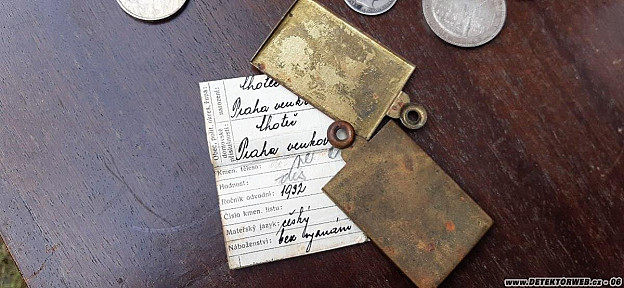 Praha venkov
Lhoteř
Praha venkov
Kmen. těleso:
Hodnost: des
Ročník odvodní: 1932
Číslo kmen. listu:
Mateřský jazyk: český
Náboženství: bez vyznání
Obec, polit. okres, župa:
domovské příslušnosti:
narození:
www.DETEKTORWEB.cz - 06